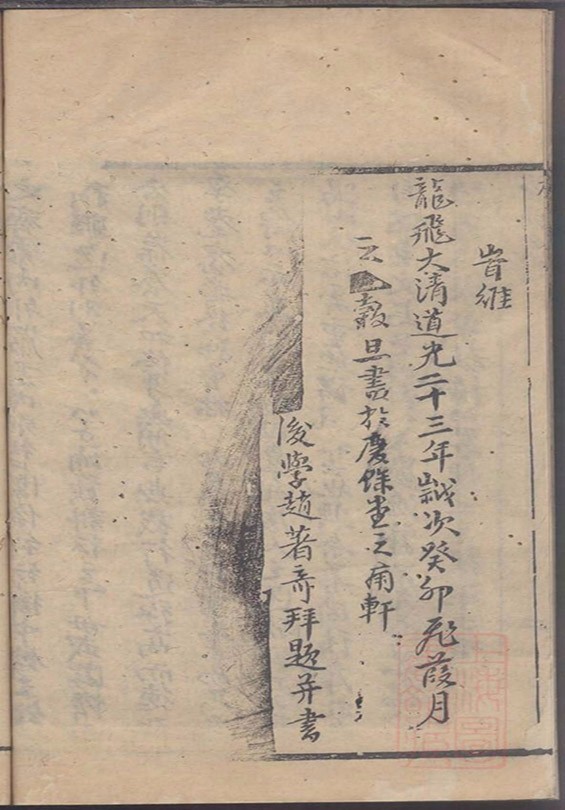 旹維
龍飛大清道光二十三年歲次癸卯飛葭月
之穀旦書於慶餘堂之南軒
後學趙著奇拜題并書